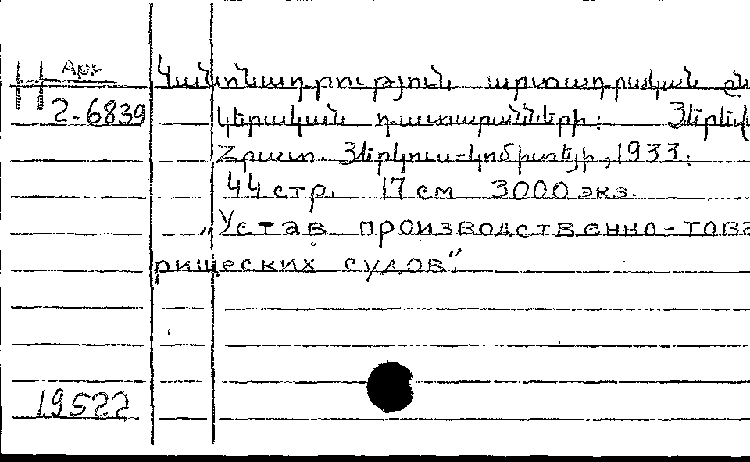 Арм
2-6839
Կանոնադրություն արտադրական ըն
կերական դատարանների: Յերև
Հրատ. Յերկուս-կոմիտեյի, 1933:
44 стр. 17 см 3000 экз.
„Устав производственно-това
рищеских судов“.
19522